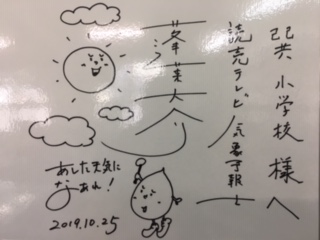 巽小学校様へ
読売テレビ 気象予報士
蓬莱大介
あした天気に
なあれ!
2019.10.25